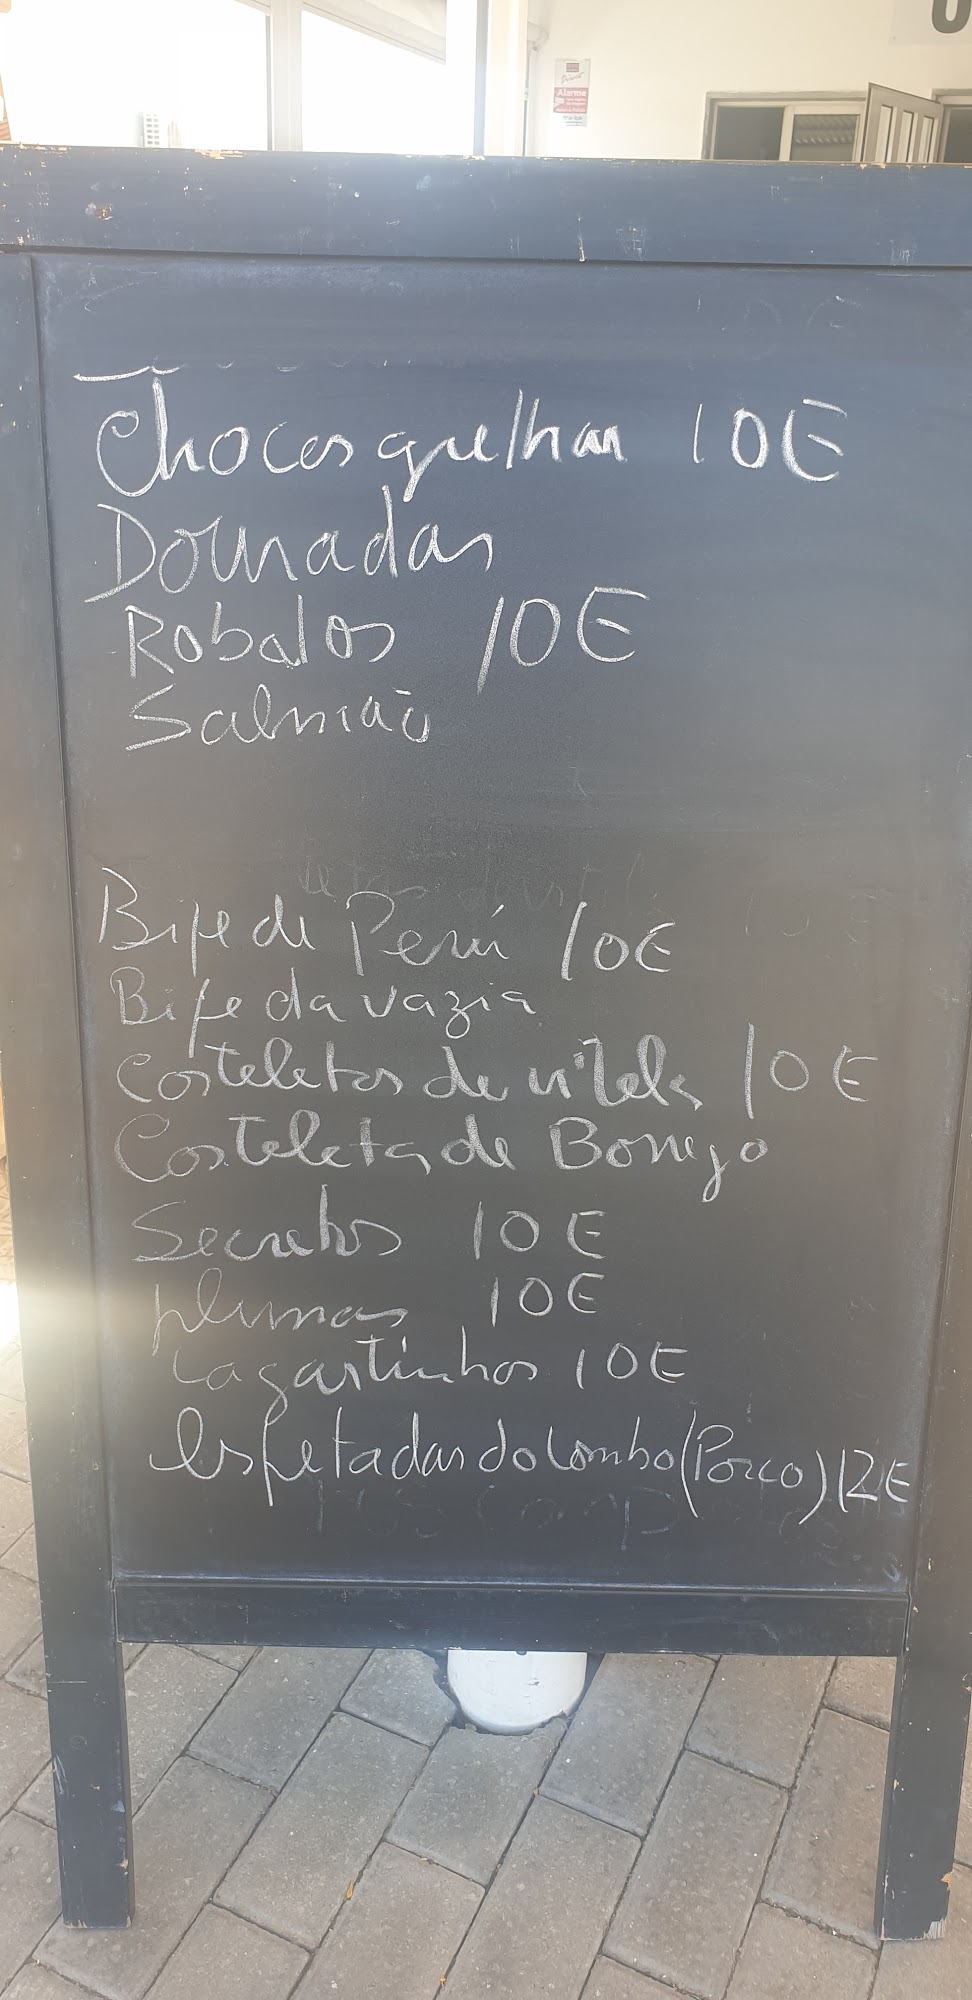 Alarme
Chocos grelhan 10E
Douradas
Robalos 10E
Salmão
Bife de Perú 10E
Bife da vazia
Costeletas de vitela 10E
Costeleta de Borrego
Secretos 10E
plumas 10E
Lagartinhos 10E
Espetadas do Lombo (Porco) 12E